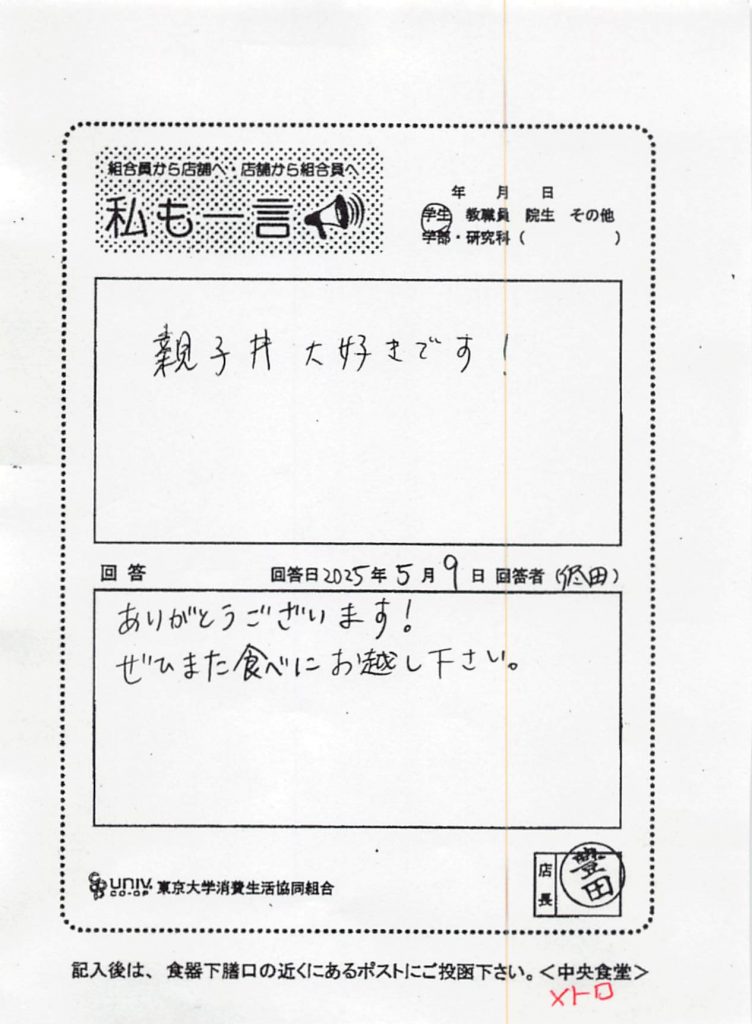 組合員から店舗へ・店舗から組合員へ
私も一言
年 月 日
学生 教職員 院生 その他
学部・研究科( )
親子丼 大好きです!
回答 回答日2025年5月9日 回答者(田)
ありがとうございます!
ぜひまた食べにお越し下さい。
UNIV. CO-OP 東京大学消費生活協同組合
店長 豊田
記入後は、食器下膳口の近くにあるポストにご投函下さい。<中央食堂>
メトロ